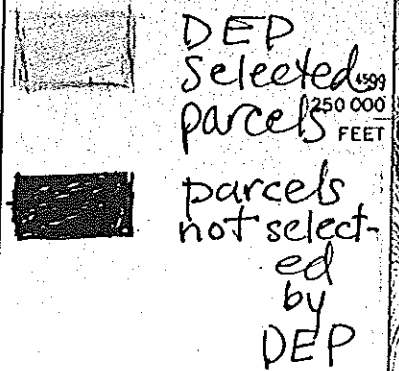 DEP
Selected
4599
parcels
250 000
FEET
parcels
not select-
ed
by
DEP